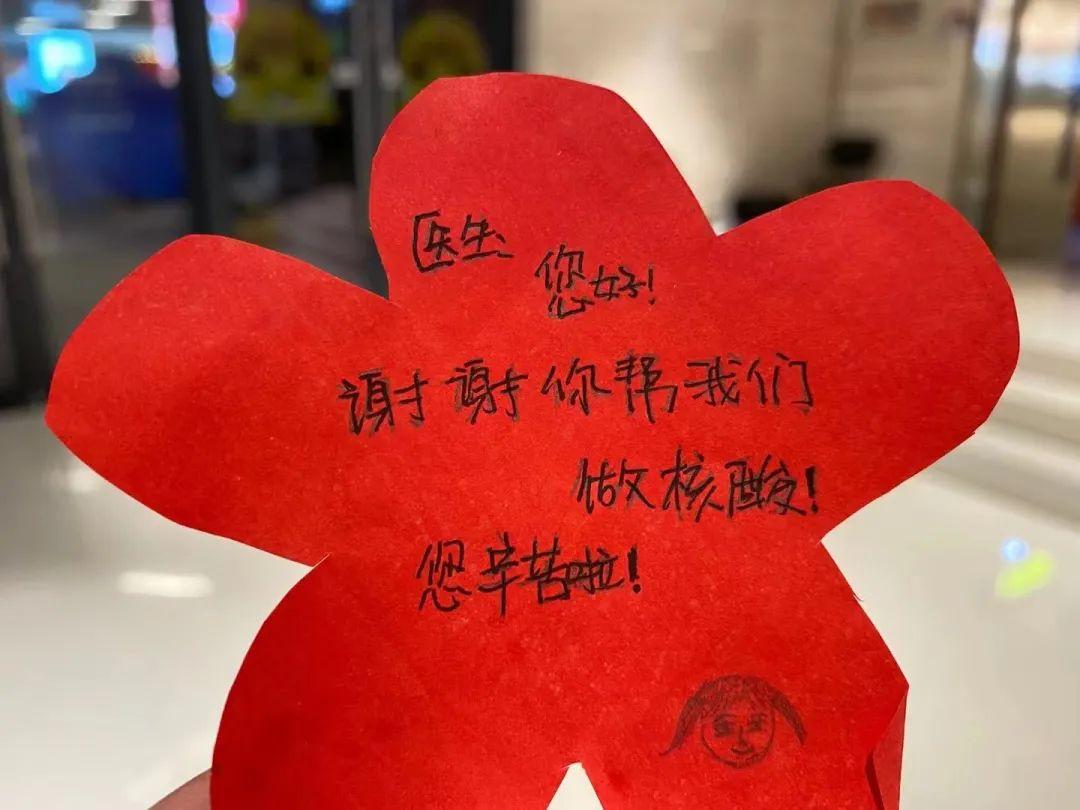 医生 您好!
谢谢你帮我们
做核酸!
您辛苦啦!